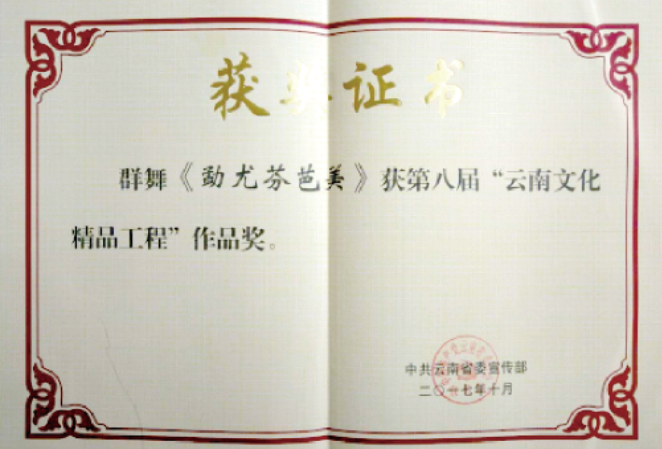 获奖证书
群舞《勐尤芬芭美》获第八届“云南文化
精品工程”作品奖。
中共云南省委宣传部
二〇一七年十月